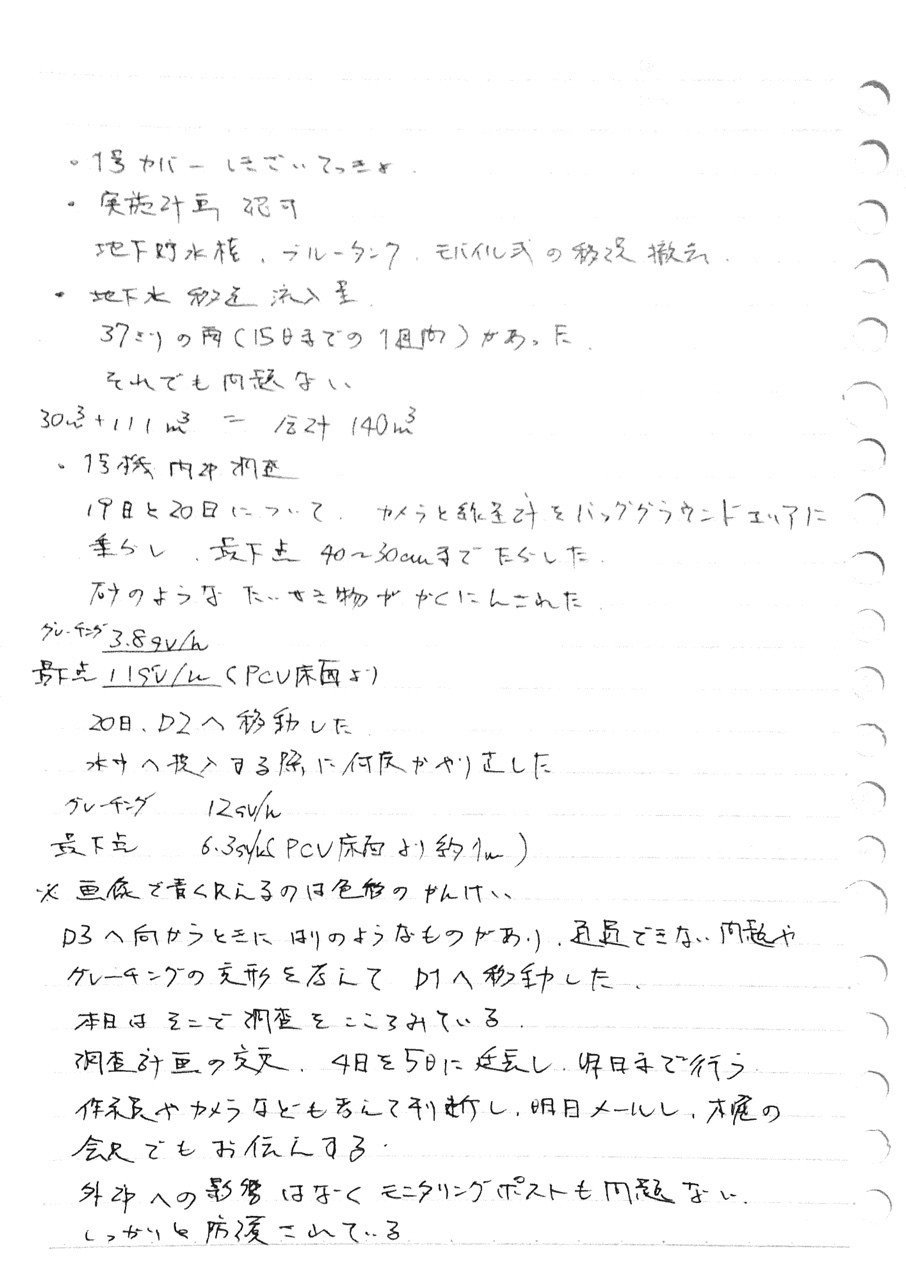 ・1号カバー しきざいてっきょ.
・実施計画 認可
地下貯水槽、ブルータンク、モバイル式の移送 撤去.
・地下水 移送 流入量.
37ミリの雨(15日までの1週間)があった.
それでも問題ない
30m³+111m³ = 合計 140m³
・1号機 内部調査
19日と20日について、カメラと線量計をバッググラウンドエリアに
垂らし、最下点 40〜30cmまでたらした.
砂のような たいせき物が かくにんされた
グレーチング 3.8sv/h
最下点 11sv/h (PCV床面より)
20日、D2へ移動した.
水中へ投入する際に何度かやり直した
グレーチング 12sv/h
最下点 6.3sv/h(PCV床面より約1m)
※ 画像で青く見えるのは色彩のかんけい
D3へ向かうときにはりのようなものがあり、通過できない問題や
グレーチングの変形を考えて D1へ移動した.
本日はそこで調査をこころみている.
調査計画の変更、4日を5日に延長し、明日まで行う
作業員やカメラなども考えて判断し、明日メールし、木曜の
会見でもお伝えする.
外部への影響はなくモニタリングポストも問題ない.
しっかりと防護されている